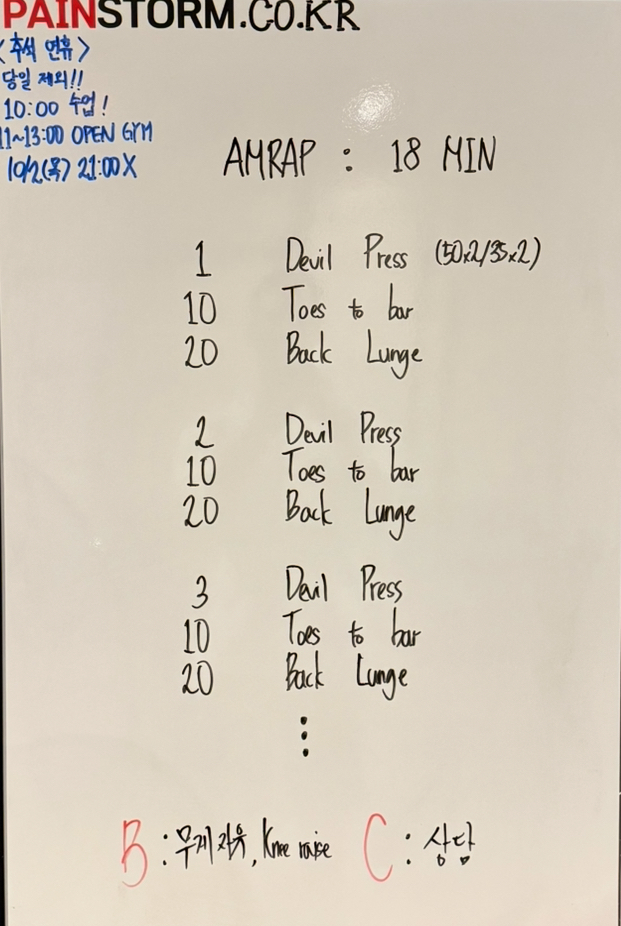 PAINSTORM.CO.KR
<추석 연휴>
당일 제외!!
10:00 수업!
11~13:00 OPEN GYM
10/2(목) 21:00 X
AMRAP : 18 MIN
1 Devil Press (50x2/35x2)
10 Toes to bar
20 Back Lunge
2 Devil Press
10 Toes to bar
20 Back Lunge
3 Devil Press
10 Toes to bar
20 Back Lunge
⋮
B : 무게 자유, Knee raise C : 상담